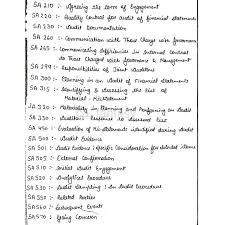 SA 210 :- Agreeing the term of Engagement
SA 220 :- Quality Control for audit of financial statements
SA 230 :- Audit Documentation
SA 260 :- Communication with Those Charge with governance
SA 265 :- Communicating deficiencies in Internal control
to those Charged with governance & Management
SA 299 :- Responsibilities of Joint Auditors
SA 300 :- Planning in an Audit of Financial Statements
SA 315 :- Identifying & assessing the Risk of
Material - Misstatement
SA 320 :- Materiality in Planning and Performing an Audit
SA 330 :- Auditor's Response to assessed Risk
SA 450 :- Evaluation of Misstatements identified during Audit
SA 500 :- Audit Evidence
SA 501 :- Audit Evidence : Specific Consideration for Selected Items
SA 505 :- External Confirmation
SA 510 :- Initial Audit Engagement
SA 520 :- Analytical Procedure
SA 530 :- Audit Sampling : In Audit Procedure
SA 550 :- Related Parties
SA 560 :- Subsequent Events
SA 570 :- Going Concern